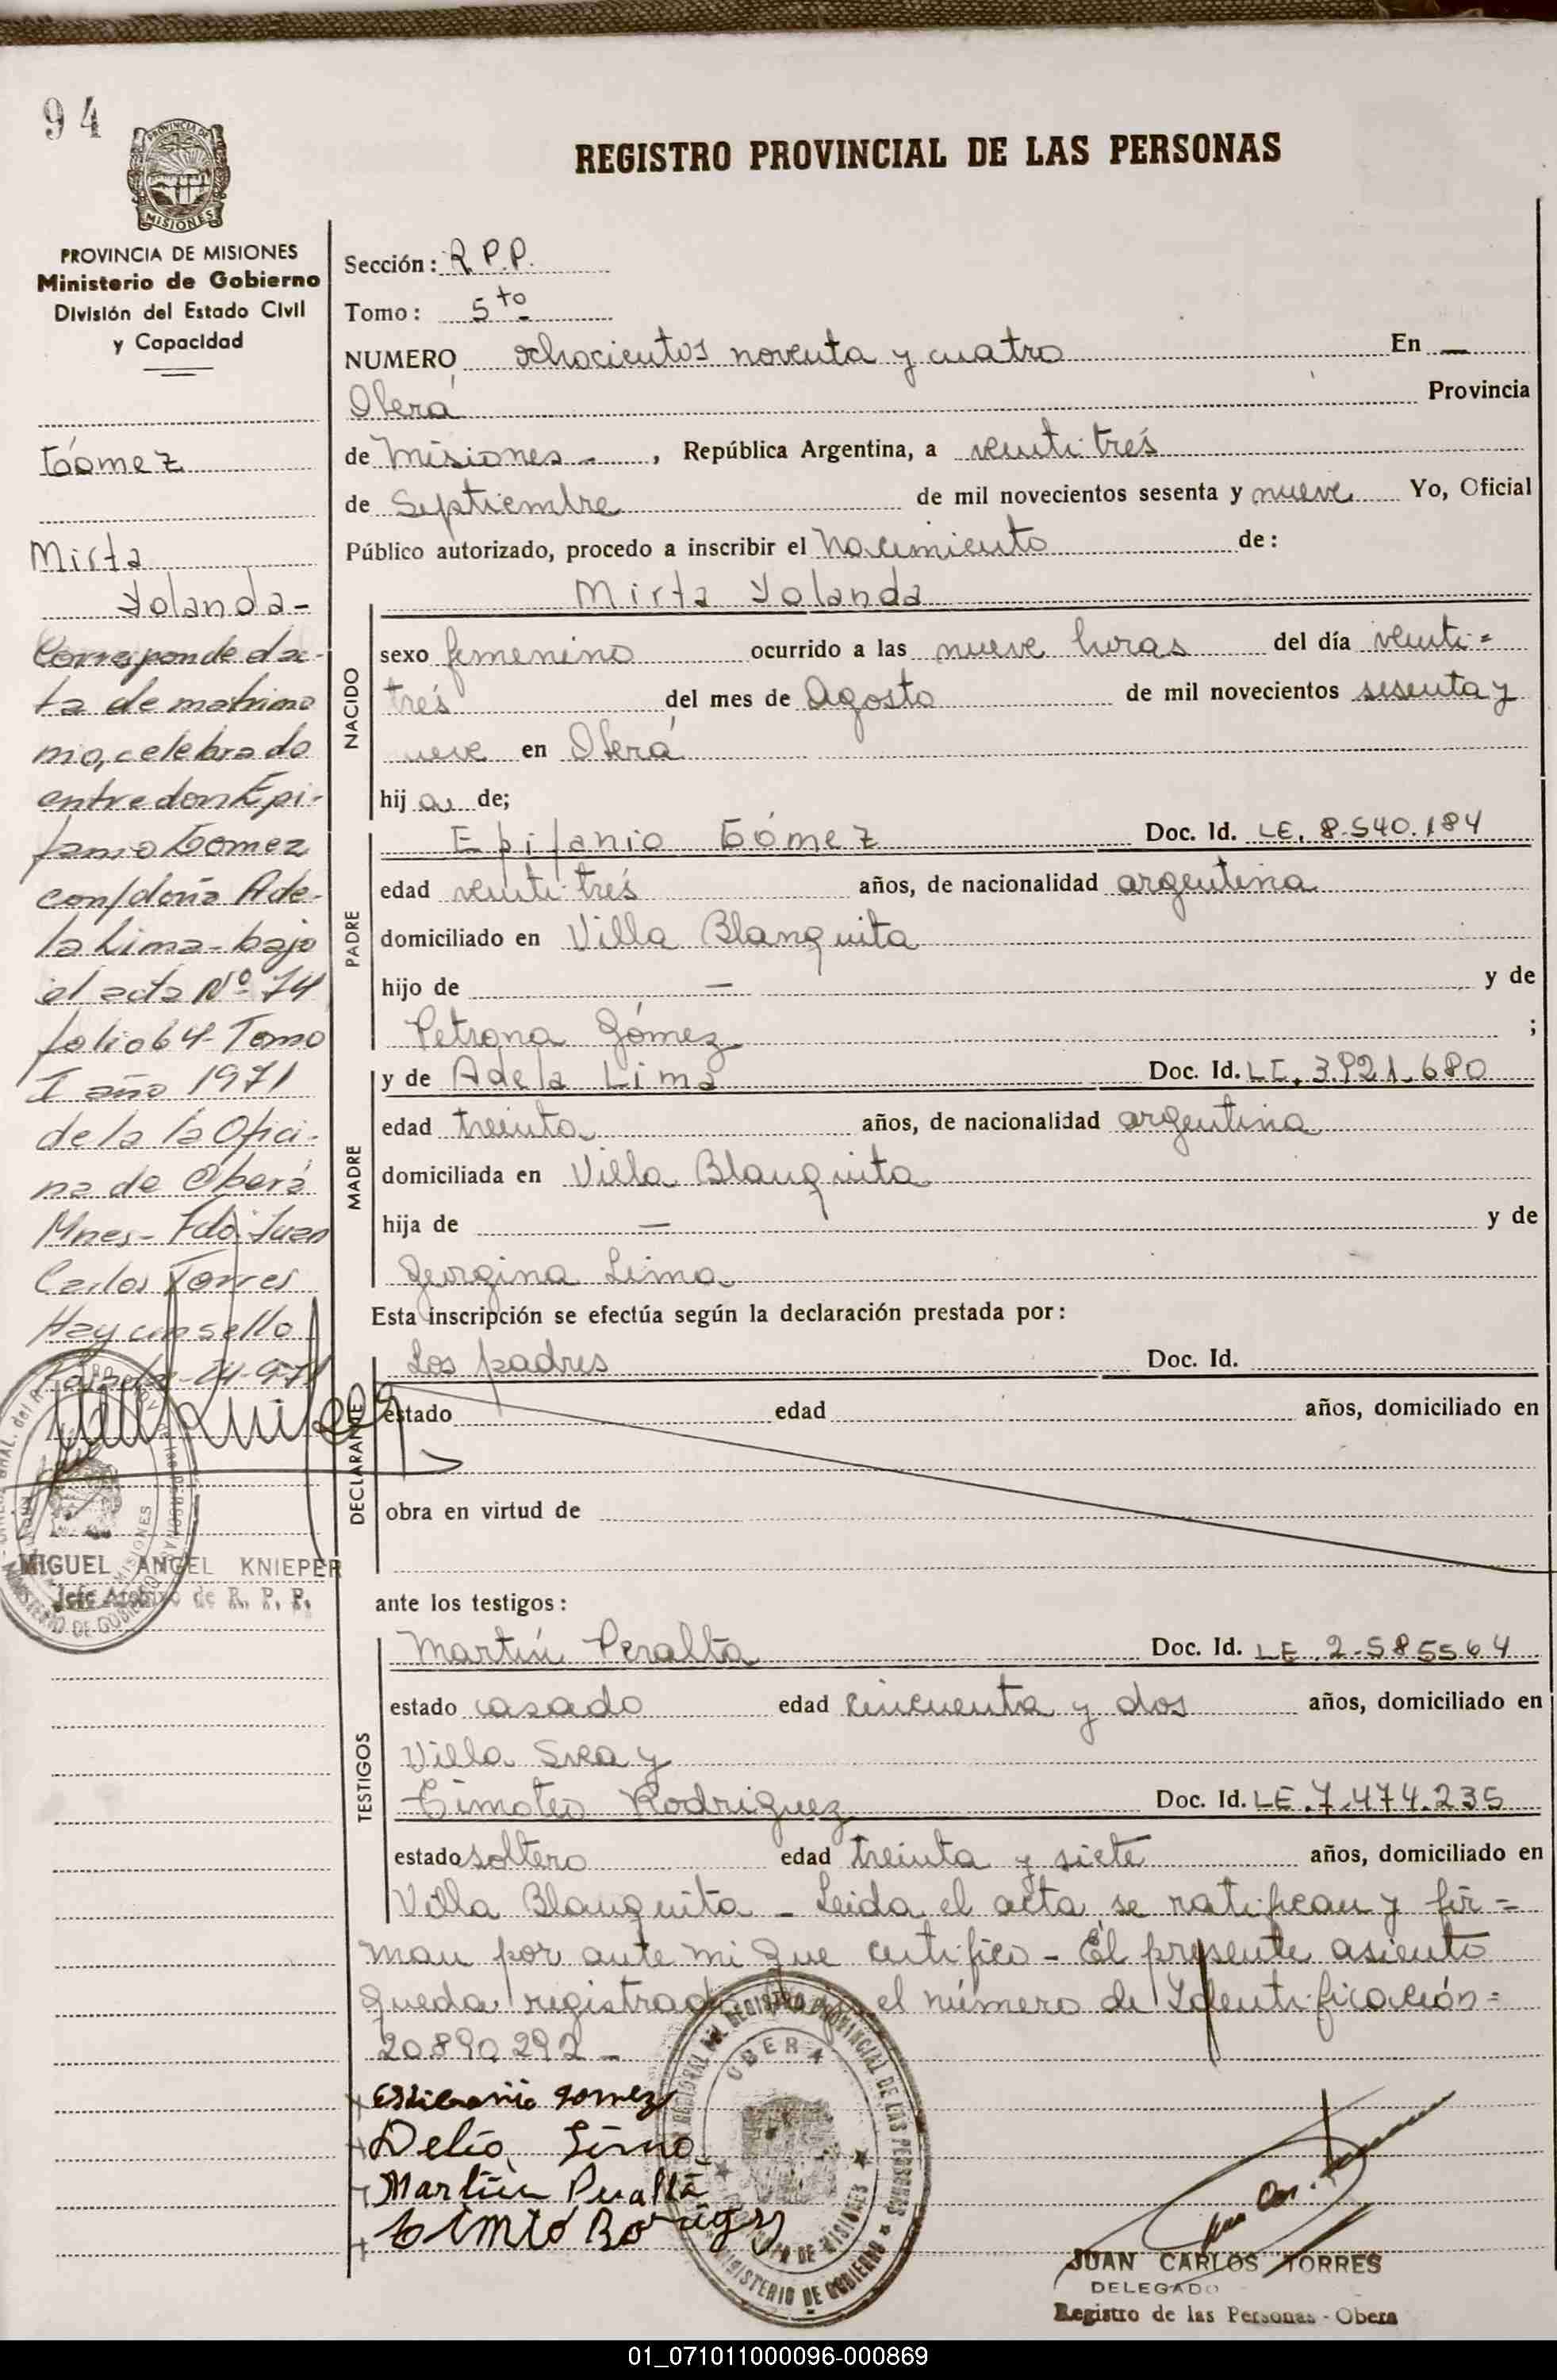 94
MISIONES
PROVINCIA DE MISIONES
Ministerio de Gobierno
División del Estado Civil
y Capacidad
Gómez
Mirta
Yolanda-
Corresponde el ac-
ta de matrimo
nio, celebrado
entre don Epi-
fanio Gomez
con/doña Ade-
la Lima - bajo
el acta Nº 74
folio 64 - Tomo
I año 1971
de la 1a Ofici-
na de Oberá
Mnes - Fdo. Juan
Carlos Torres
Hay un sello
MIGUEL ANGEL KNIEPER
Jefe Archivo de R. P. P.
REGISTRO PROVINCIAL DE LAS PERSONAS
Sección: R.P.P.
Tomo: 5to
NUMERO ochocientos noventa y cuatro En —
Oberá Provincia
de Misiones - , República Argentina, a veinti trés
de Septiembre de mil novecientos sesenta y nueve Yo, Oficial
Público autorizado, procedo a inscribir el Nacimiento de:
Mirta Yolanda
NACIDO
sexo femenino ocurrido a las nueve horas del día veinti=
trés del mes de Agosto de mil novecientos sesenta y
nueve en Oberá
hij a de;
PADRE
Epifanio Gómez Doc. Id. LE. 8.540.184
edad veinti trés años, de nacionalidad argentina
domiciliado en Villa Blanquita
hijo de — y de
Petrona Gómez ;
MADRE
y de Adela Lima Doc. Id. LC. 3.921.680
edad treinta años, de nacionalidad argentina
domiciliada en Villa Blanquita
hija de — y de
Georgina Lima
Esta inscripción se efectúa según la declaración prestada por:
DECLARANTE
Los padres Doc. Id.
estado edad años, domiciliado en
obra en virtud de
ante los testigos:
TESTIGOS
Martín Peralta Doc. Id. LE. 2.585564
estado casado edad cincuenta y dos años, domiciliado en
Villa Svea y
Timoteo Rodriguez Doc. Id. LE. 7.474.235
estado soltero edad treinta y siete años, domiciliado en
Villa Blanquita - Leida el acta se ratifican y fir=
man por ante mi que certifico - El presente asiento
queda registrado bajo el número de Identificación=
20.890.292 -
Gomez
Delia Lima
Martín Peralta
OBERA
MINISTERIO DE GOBIERNO
JUAN CARLOS TORRES
DELEGADO
Registro de las Personas - Obera
01_071011000096-000869